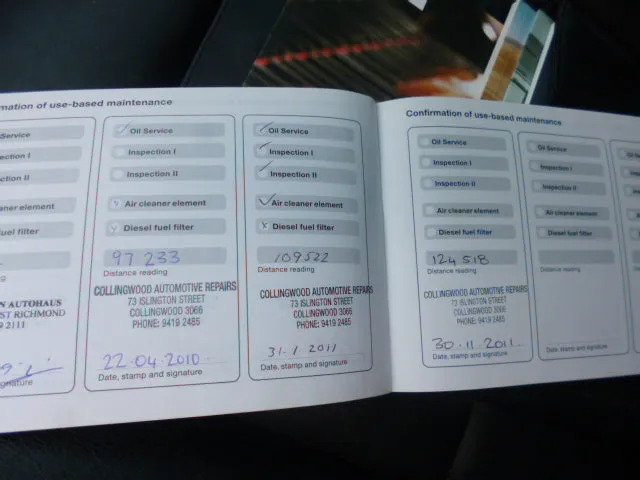 mation of use-based maintenance
Service
ection I
ction II
aner element
uel filter
ng
N AUTOHAUS
ST RICHMOND
9 2111
gnature
Oil Service
Inspection I
Inspection II
Air cleaner element
Diesel fuel filter
97 233
Distance reading
COLLINGWOOD AUTOMOTIVE REPAIRS
73 ISLINGTON STREET
COLLINGWOOD 3066
PHONE: 9419 2485
22.04.2010.
Date, stamp and signature
Oil Service
Inspection I
Inspection II
Air cleaner element
Diesel fuel filter
109522
Distance reading
COLLINGWOOD AUTOMOTIVE REPAIRS
73 ISLINGTON STREET
COLLINGWOOD 3066
PHONE: 9419 2485
31.1.2011
Date, stamp and signature
Confirmation of use-based maintenance
Oil Service
Inspection I
Inspection II
Air cleaner element
Diesel fuel filter
124 518
Distance reading
COLLINGWOOD AUTOMOTIVE REPAIRS
73 ISLINGTON STREET
COLLINGWOOD 3066
PHONE: 9419 2485
30.11.2011.
Date, stamp and signature
Oil Service
Inspection I
Inspection II
Air cleaner element
Diesel fuel filter
Distance reading
Date, stamp and signature